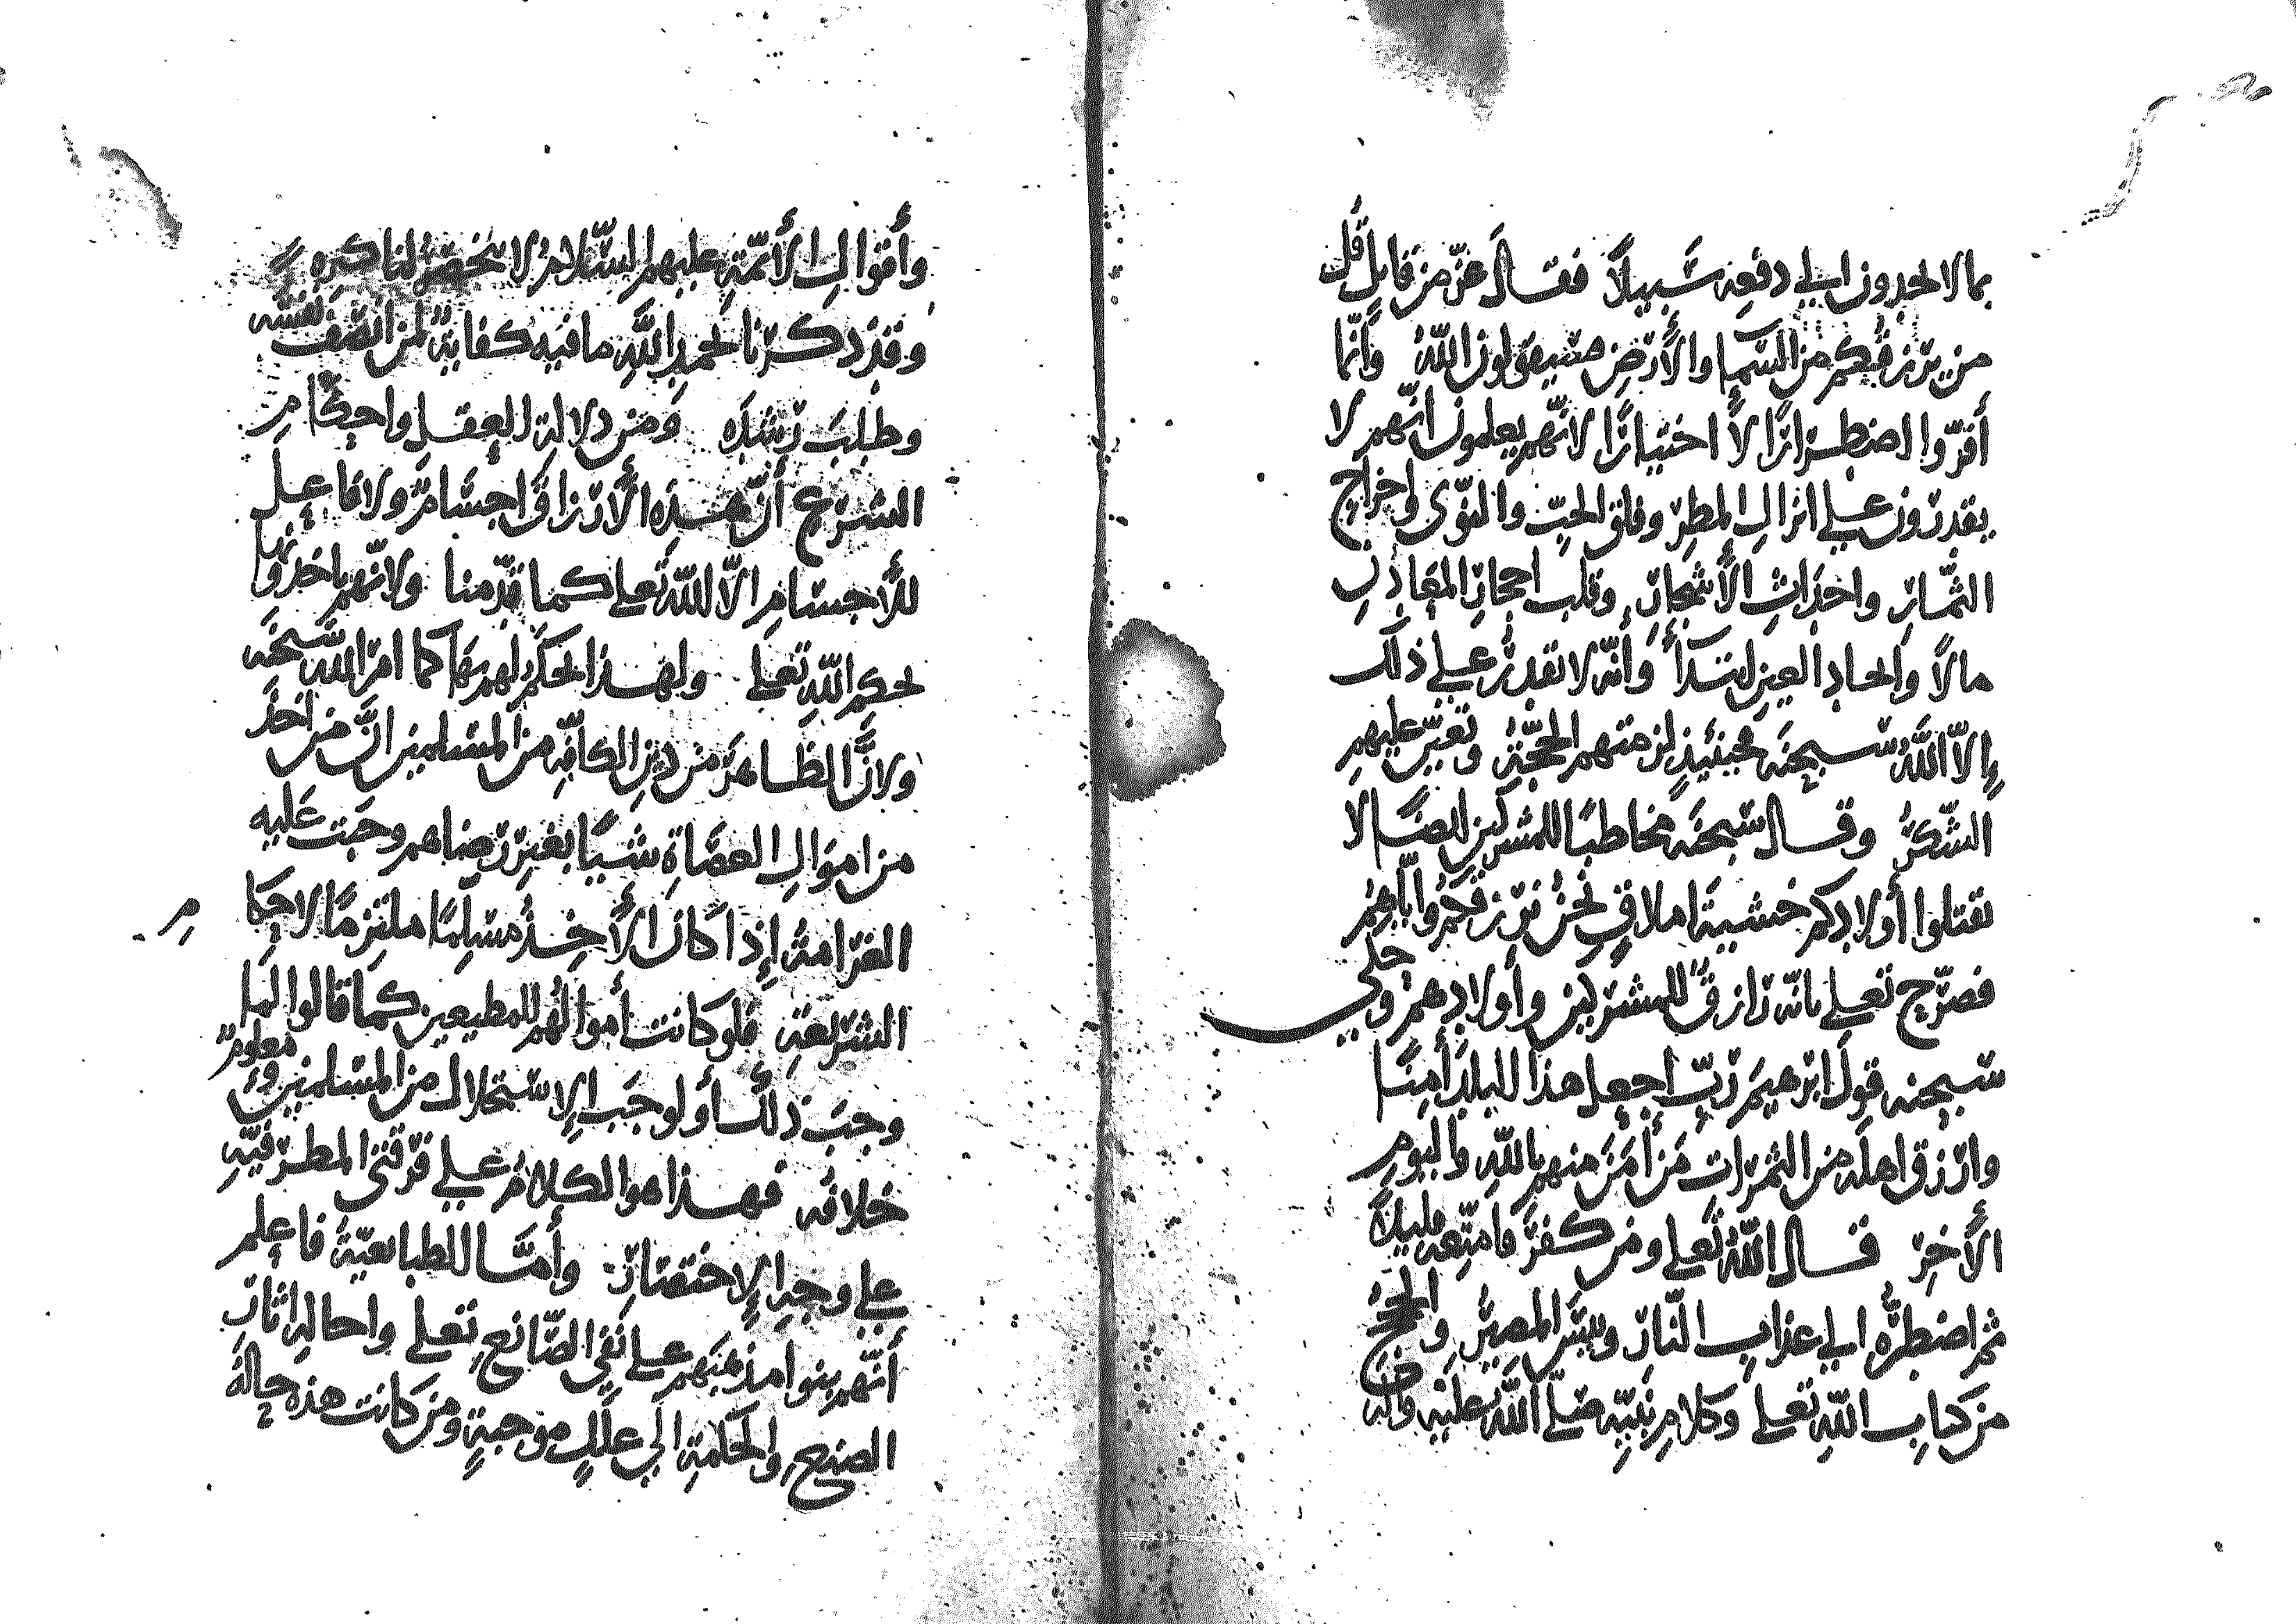 بما لا يجدون الى دفعه سَبيلاً فقال عزّ من قايل قُل
من يرزقكم من السما والأرض سيقولون اللّه وانّما
أقرّوا اضطرارًا لا اختيارًا لانّهم يعلمون انّهم لا
يقدرون على انزال المطر وفلق الحبّ والنّوى واخراج
الثّمار واحداث الأشجار وقلب احجار المعادن
مالاً وايجاد العين ابتدآً وأنّه لا يقدر على ذلك
إلاّ اللّه سبحنه فحينئذٍ لزمتهم الحجّة وتعيّن عليهم
الشّكر وقال سبحنه مخاطبًا للمشركين ايضًا لا
تقتلوا أولادكم خشية املاقٍ نحن نرزقكم وايّاهم
فصرّح تعلى بانّه رازقٌ للمشركين وأولادهم وحكى
سبحنه قول ابرهيم ربّ اجعل هذا البلد أمنًا
وارزق اهله من الثمرات مَن أمَن منهم باللّه واليوم
الأخر قال اللّه تعلى ومن كفر فأمتّعه قليلاً
ثم اضطرّه الى عذاب النّار وبئس المصير والحجج
من كتاب اللّه تعلى وكلام نبيّه صلّى اللّه عليه واله
وأقوال الأئمّة عليهم السّلام لا تنحصر لنا كثرةً
وقد ذكرنا بحمد اللّه ما فيه كفايةٌ لمن انصف نفسه
وطلب رشده ومن دلالة العقل واحكام
الشرع أنّ هذه الأرزاق اجسامٌ ولا فاعل
للأجسام الاّ اللّه تعلى كما قدّمنا ولانّهم ياخذونها
بحكم اللّه تعلى ولهذا يحكم لهم بها كما امر اللّه سبحنه
ولانّ الظاهر من دين الكافّة من المسلمين انّ من اخذ
من اموال العصاة شيئًا بغير رضاهم وجبت عليه
الغرامة إذا كان الأخذ مسلمًا ملتزمًا لاحكام
الشريعة فلو كانت أموالهم للمطيعين كما قالوا لما
وجب ذلك أو لوجب الإستحلال من المسلمين ومعلومٌ
خلافه فهذا هو الكلام على فرقتى المطرّفيّة
على وجه الإختصار وأمّا الطبايعيّة فاعلم
أنّهم بنوا مذهبهم على نفى الصّانع تعلى واحالة اثار
الصنع والحكمة الى عللٍ موجبةٍ ومن كانت هذه حاله